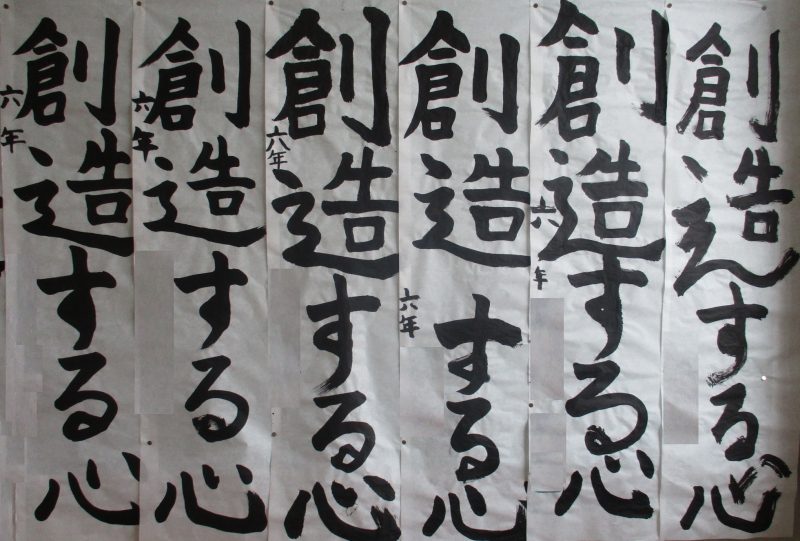 創造する心
創造する心
六年
創造する心
六年
創造する心
六年
創造する心
六年
創造する心
六年